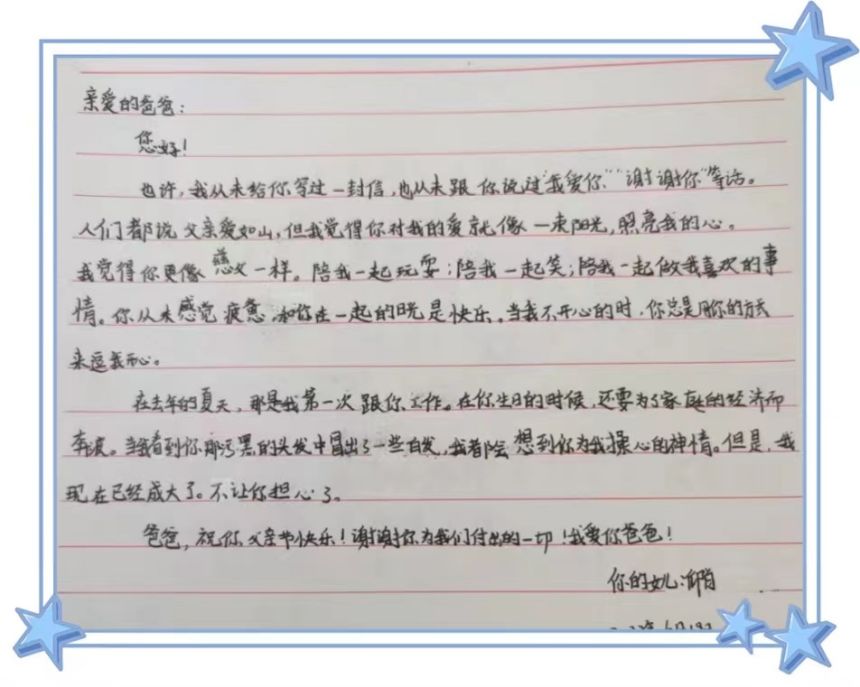 亲爱的爸爸：
您好！
也许，我从未给你写过一封信，也从未跟你说过“我爱你”“谢谢你”等话。
人们都说父亲爱如山，但我觉得你对我的爱就像一束阳光，照亮我的心。
我觉得你更像慈父一样。陪我一起玩耍；陪我一起笑；陪我一起做我喜欢的事
情。你从未感觉疲惫，和你在一起的时光是快乐。当我不开心的时，你总是用你的方式
来逗我开心。
在去年的夏天，那是我第一次跟你工作。在你生日的时候，还要为了家庭的经济而
奔波。当我看到你那污黑的头发中冒出了一些白发，我都会想到你为我操心的神情。但是，我
现在已经成大了。不让你担心了。
爸爸，祝你父亲节快乐！谢谢你为我们付出的一切！我爱你爸爸！
你的女儿：